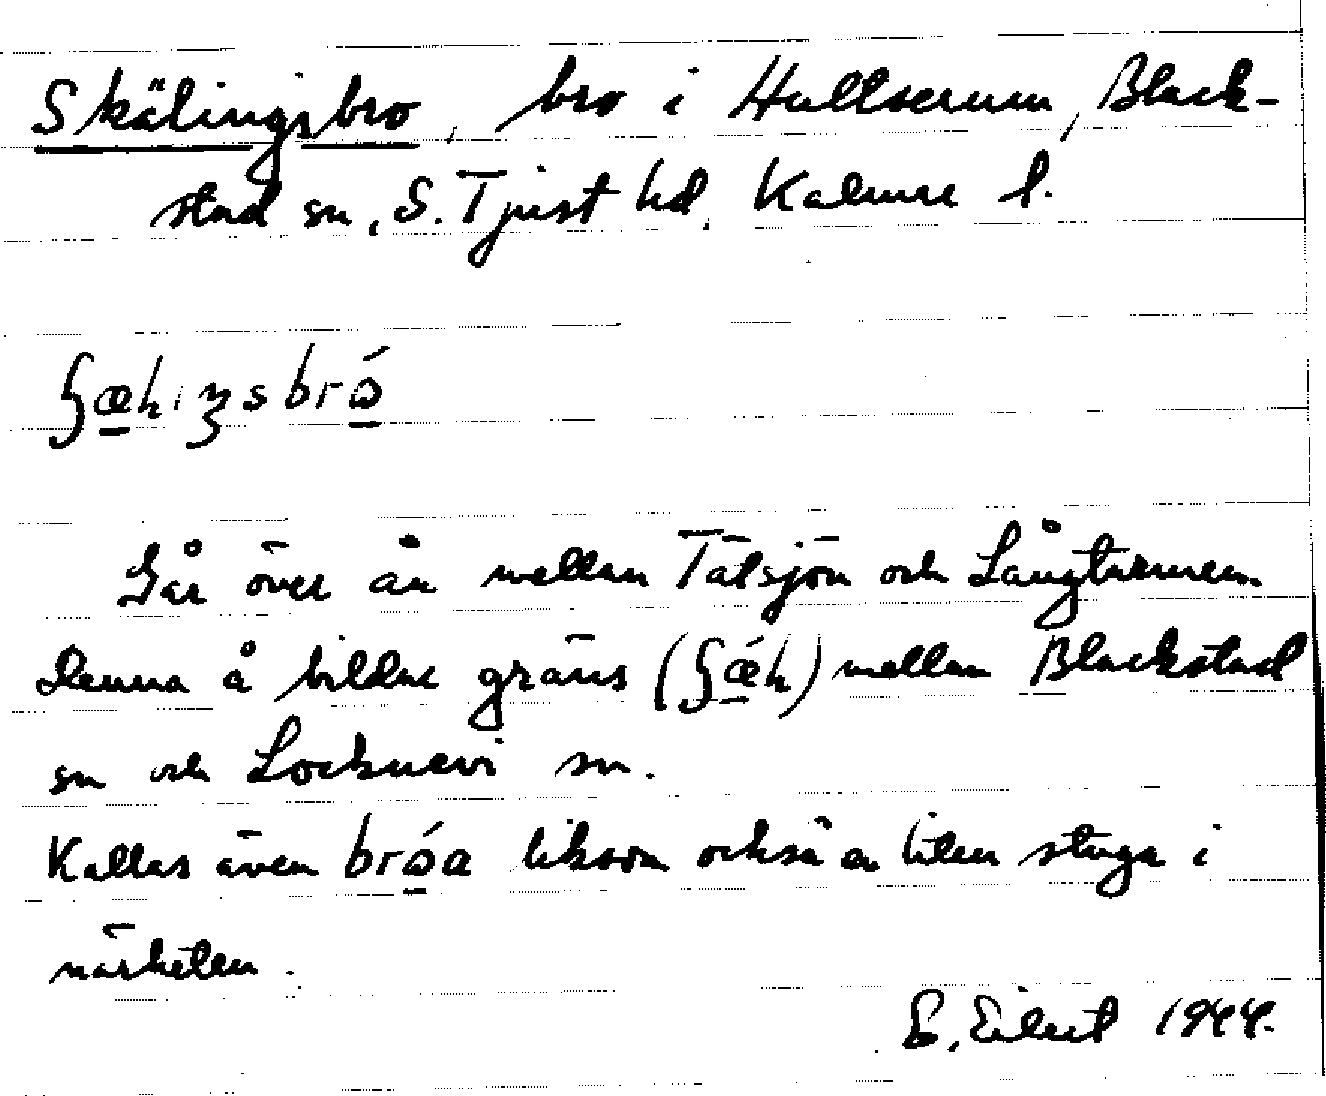 Skälingsbro, bro i Hultserum, Black-
stad sn, S. Tjust hd, Kalmar l.
bró̱
Går över ån mellan Tälsjön och Långtrammen.
Denna å bildar gräns mellan Blackstad
sn och Locknevi sn.
Kallas även bró̱a liksom också en liten stuga i
närheten.
1944.